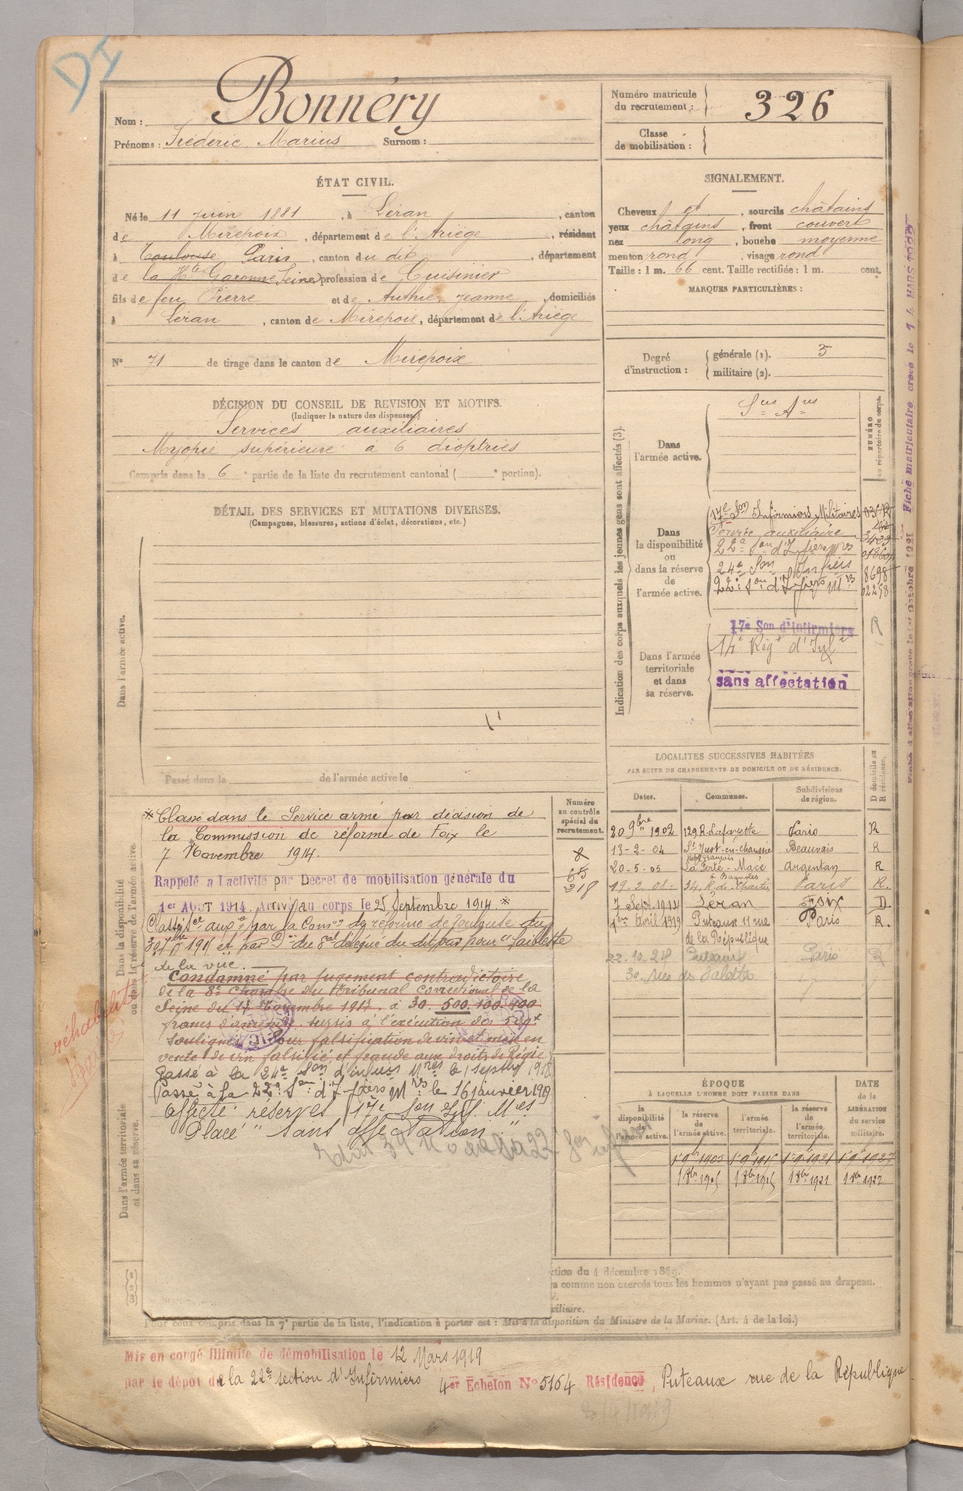 DI
Nom : Bonnéry
Prénoms : Frédéric Marius Surnom :
Numéro matricule du recrutement : 326
Classe de mobilisation :
ÉTAT CIVIL.
Né le 11 juin 1881, à Léran, canton
de Mirepoix, département de l'Ariège, résidant
à Toulouse Paris, canton du dit, département
de la Hte Garonne Seine, profession de Cuisinier
fils de feu Pierre et de Authié Jeanne, domiciliés
à Léran, canton de Mirepoix, département de l'Ariège
N° 71 de tirage dans le canton de Mirepoix
SIGNALEMENT.
Cheveux et, sourcils châtains
yeux châtains, front couvert
nez long, bouche moyenne
menton rond, visage rond
Taille : 1 m. 66 cent. Taille rectifiée : 1 m. cent.
MARQUES PARTICULIÈRES :
Degré d'instruction : générale (1). 3
militaire (2).
DÉCISION DU CONSEIL DE REVISION ET MOTIFS.
(Indiquer la nature des dispenses)
Services auxiliaires
Myopie supérieure à 6 dioptries
Compris dans la 6e partie de la liste du recrutement cantonal ( e portion).
DÉTAIL DES SERVICES ET MUTATIONS DIVERSES.
(Campagnes, blessures, actions d'éclat, décorations, etc.)
Dans l'armée active.
Passé dans la de l'armée active le
Indication des corps auxquels les jeunes gens sont affectés (3).
NUMÉRO au répertoire du corps.
Dans l'armée active.
Sces Ares
Dans la disponibilité ou dans la réserve de l'armée active.
17e Son Infirmiers Militaires
Service auxiliaire
22e Son d'Infirs Mres
24e Son Infirs
8698
22e Son d'Infirs Mres
02298
Dans l'armée territoriale et dans sa réserve.
17e Son d'Infirmiers
14e Régt d'Infie
sans affectation
R
LOCALITÉS SUCCESSIVES HABITÉES
PAR SUITE DE CHANGEMENTS DE DOMICILE OU DE RÉSIDENCE.
Dates. Communes. Subdivisions de région. D domicile ou R résidence.
20 9bre 1902 129 R. Lafayette Paris R
13-2-04 St Just-en-Chaussée Beauvais R
20-5-05 La Ferté-Macé Argentan R
à Bagnoles
34, R. de Chartres Paris R.
7 Sept. 1912 Léran Foix D.
1er Avril 1919 Puteaux 11 rue de la République Paris R.
22.10.28 Puteaux Paris R
Numéro au contrôle spécial du recrutement.
318
Dans la disponibilité ou dans la réserve de l'armée active.
* Classé dans le Service armé par décision de
la Commission de réforme de Foix le
7 Novembre 1914.
Rappelé à l'activité par Décret de mobilisation générale du
1er AOUT 1914. Arrivé au corps le 25 Septembre 1914 *
Classé Sce auxre par la Comon de réforme de Toulouse du
de la vue.
Condamné par jugement contradictoire
de la 8e Chambre du Tribunal correctionnel de la
Seine du 17 Novembre 1913 à 30. 500. 100. 100
francs d'amende, sursis à l'exécution des 500f
soulignés. Pour falsification de vin et mise en
vente de vin falsifié et fraude aux droits de Régie
Passé à la 24e Son d'infirs Mres le 1 Septbre 1918
Passé à la 22e Son d'Infirs Mres le 16 janvier 1919
Affecté réserves 17e Son Inf. Mres
Placé "Sans affectation"
réhabilité
Dans l'armée territoriale et dans sa réserve.
ÉPOQUE
À LAQUELLE L'HOMME DOIT PASSER DANS
DATE DE LA LIBÉRATION DU SERVICE militaire.
la disponibilité de l'armée active.
la réserve de l'armée active.
l'armée territoriale.
la réserve de l'armée territoriale.
1 8bre 1905 1 8bre 1915 1 8bre 1921 1 8bre 1927
ction du 4 décembre 1889.
s comme non exercés tous les hommes n'ayant pas passé au drapeau.
xiliaire.
Pour ceux compris dans la 7e partie de la liste, l'indication à porter est : Mis à la disposition du Ministre de la Marine. (Art. 4 de la loi.)
Mis en congé illimité de démobilisation le 12 Mars 1919
par le dépôt de la 22e section d'Infirmiers 4er Echelon N° 5164 Résidence, Puteaux rue de la République